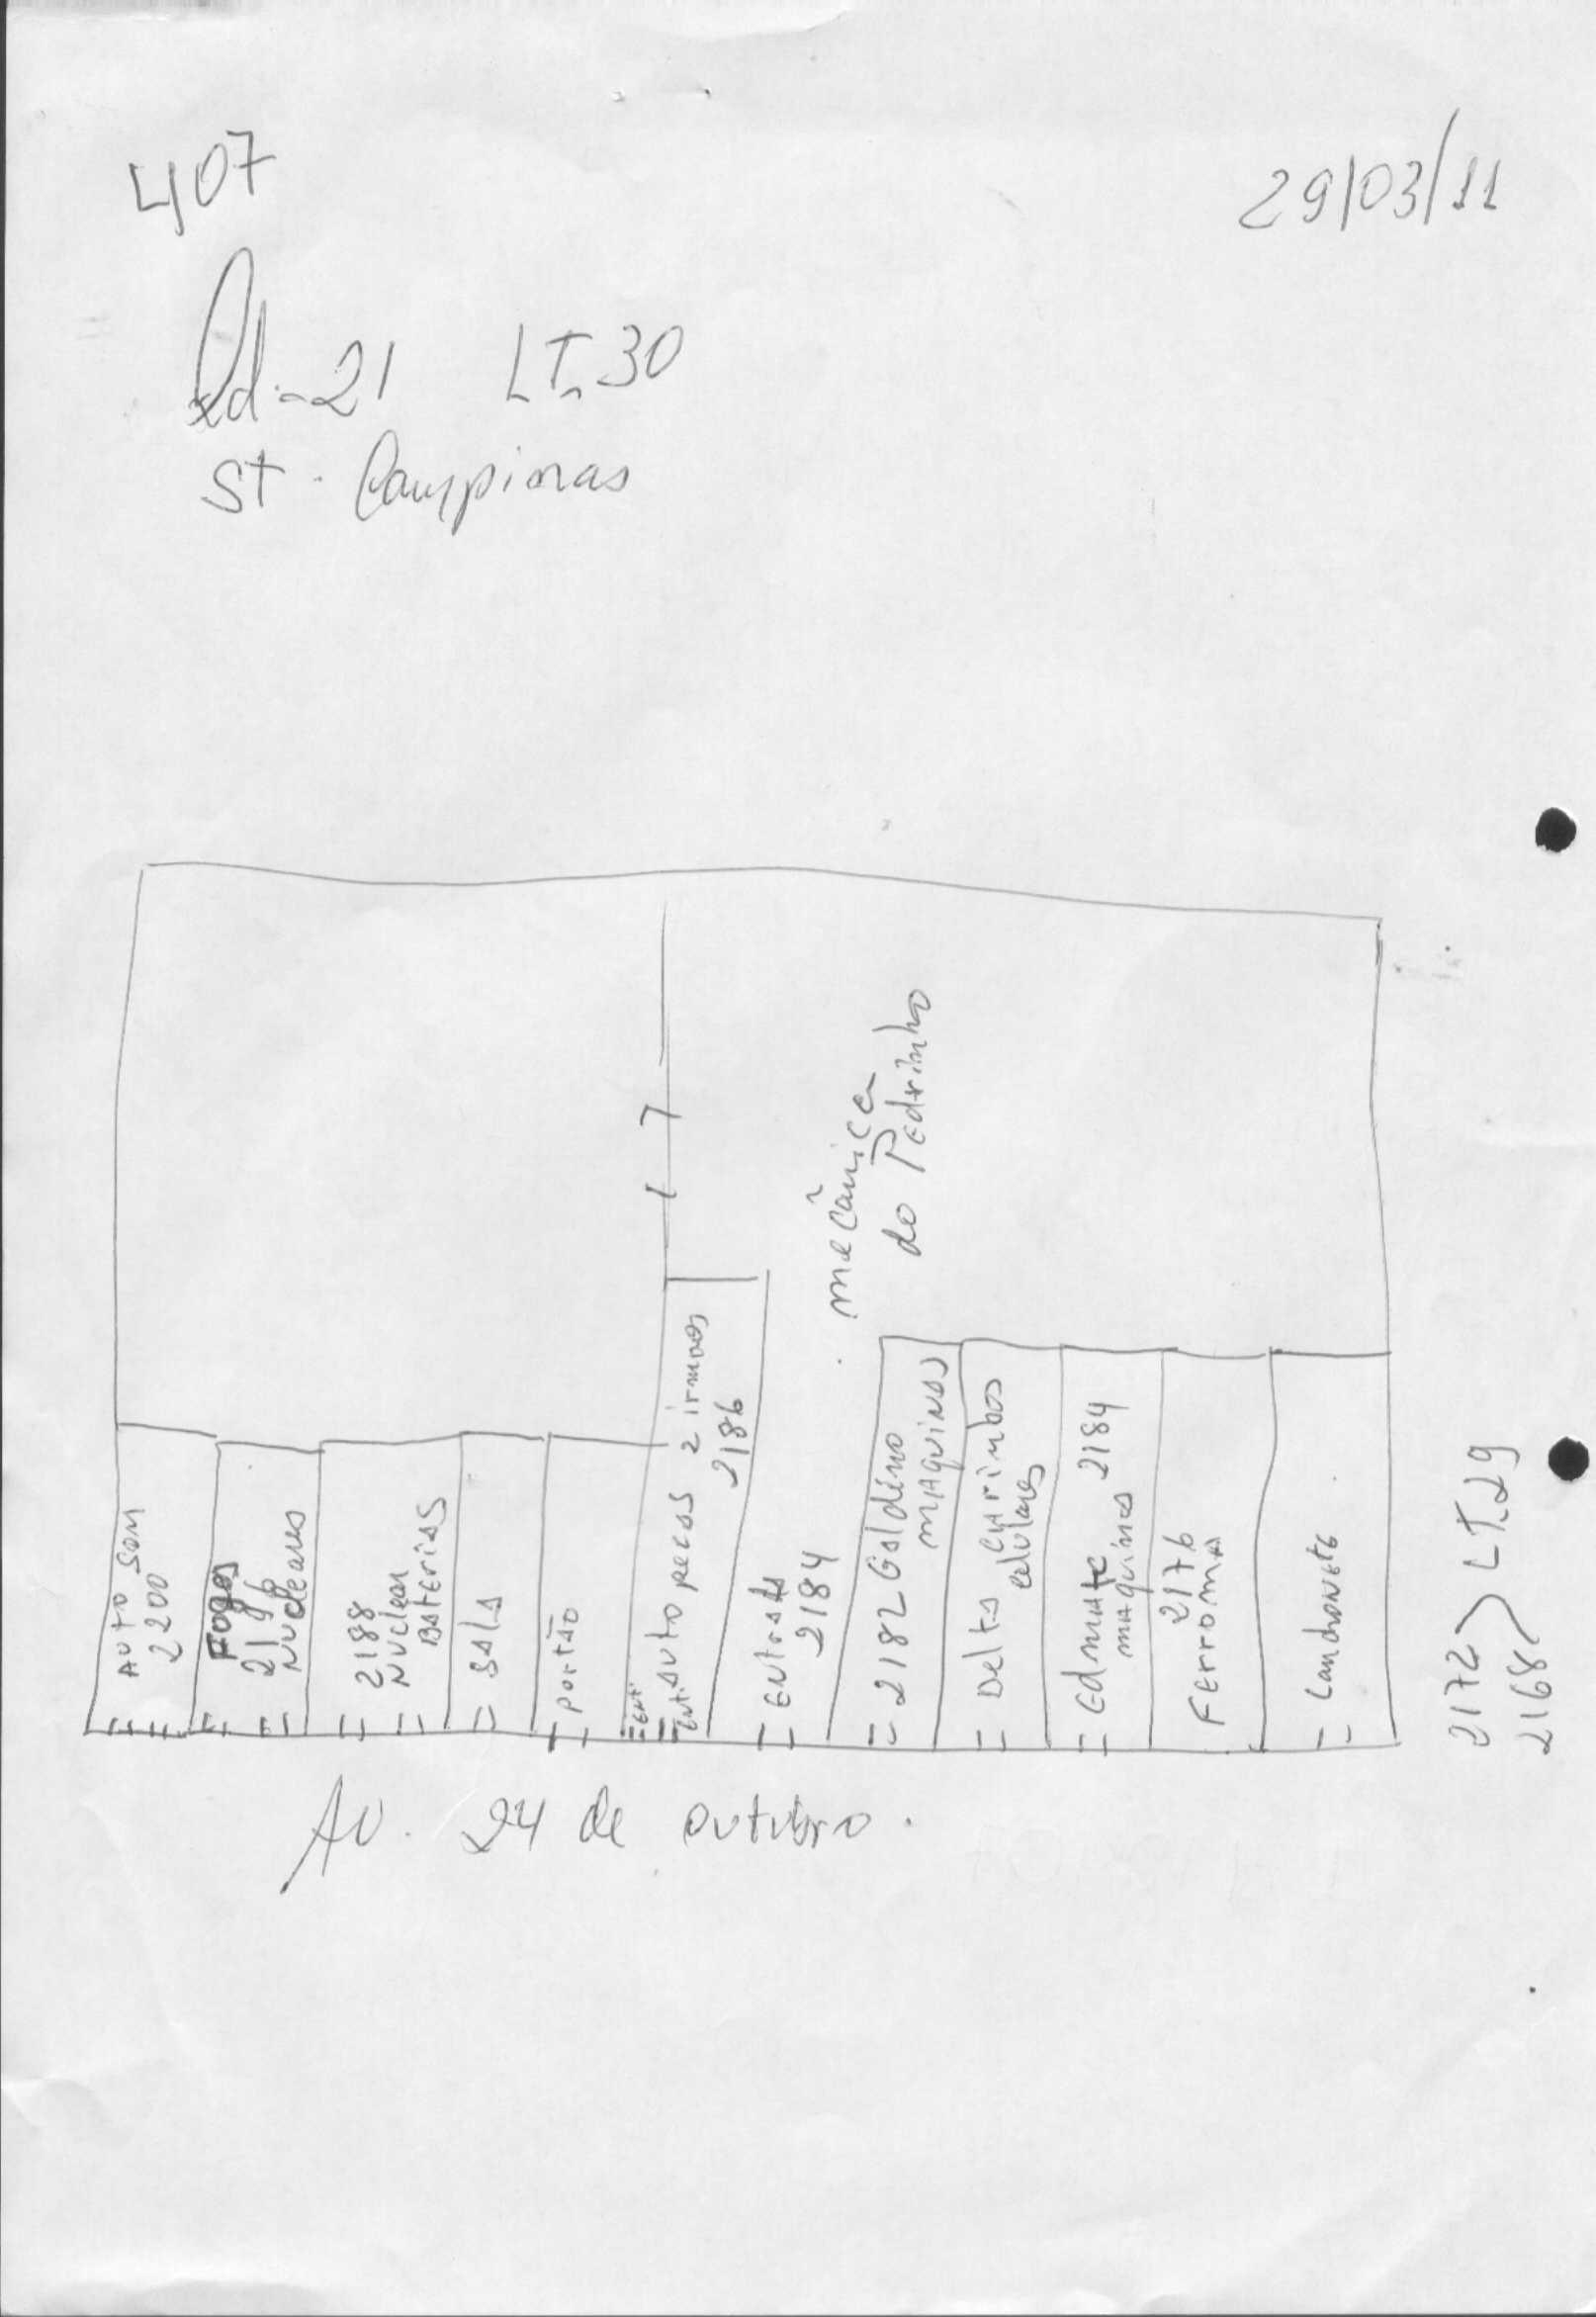 407
29/03/11
Qd-21 LT.30
St. Campinas
mecânica
do Pedrinho
Auto som
2200
Fogos
2196
Nucleares
2188
Nuclear
Baterias
sala
portão
Ent.
Ent.
auto pecas 2 irmaos
2186
Entrada
2184
2182 Galdino
maquinas
Delta
celulares
Edmate
maquinas 2184
2176
Ferroma
Lanchonete
2172
2168
LT.29
Av. 24 de outubro.